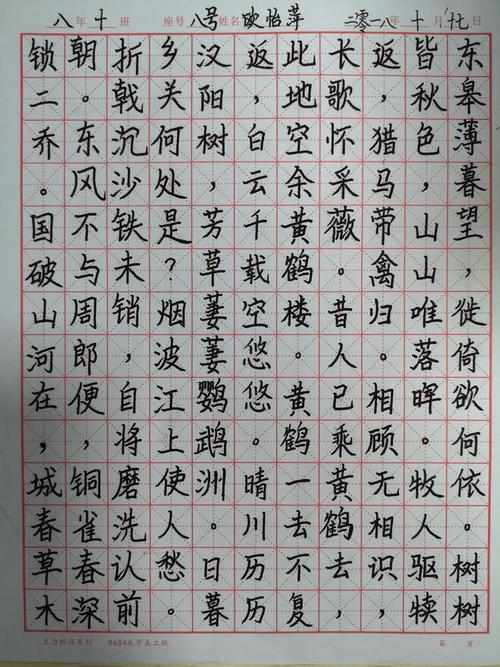 八年十班 座号八号姓名欧怡萍 二零一八年十月十七日
东皋薄暮望，徙倚欲何依。树树
皆秋色，山山唯落晖。牧人驱犊
返，猎马带禽归。相顾无相识，
长歌怀采薇。昔人已乘黄鹤去，
此地空余黄鹤楼。黄鹤一去不复
返，白云千载空悠悠。晴川历历
汉阳树，芳草萋萋鹦鹉洲。日暮
乡关何处是？烟波江上使人愁。
折戟沉沙铁未销，自将磨洗认前
朝。东风不与周郎便，铜雀春深
锁二乔。国破山河在，城春草木
纸品系列 8604米字美工纸 第 页